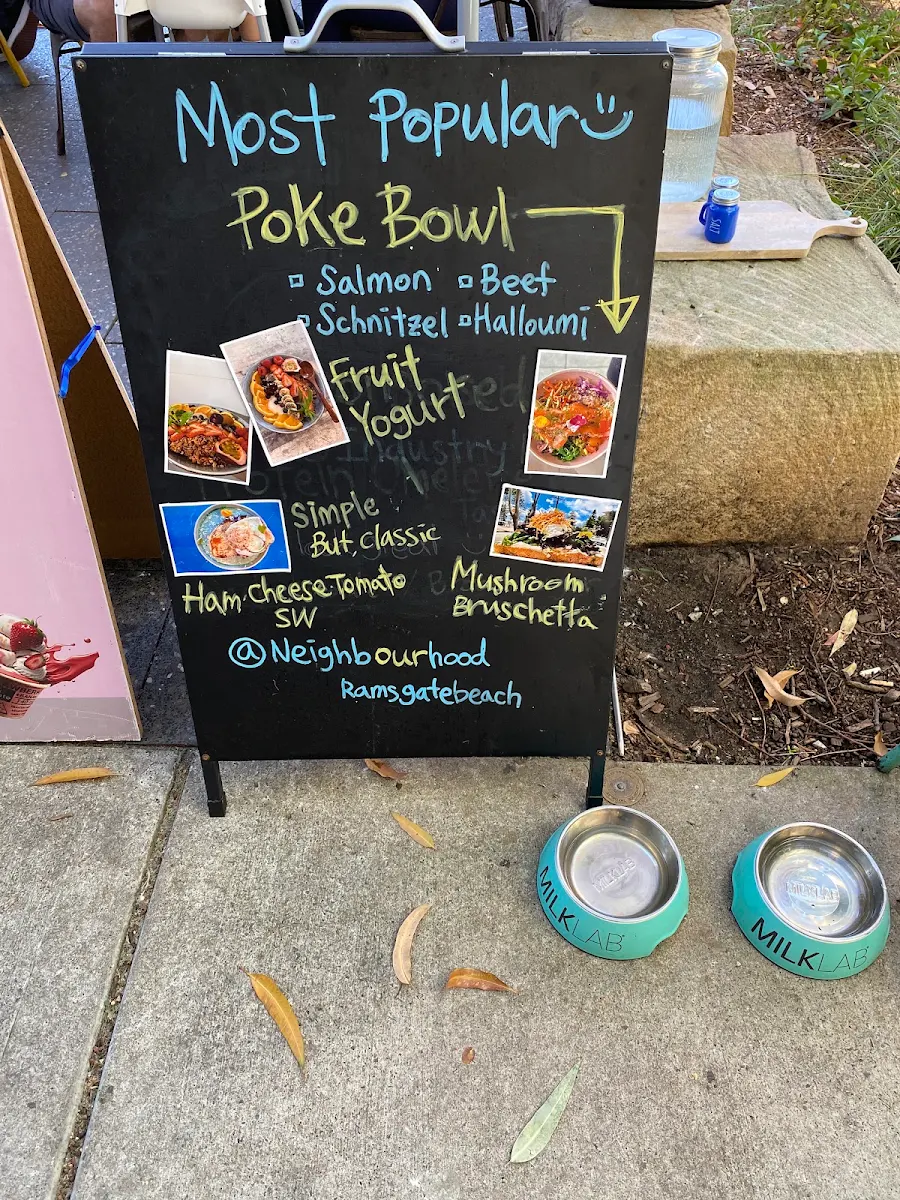 Most Popular
Poke Bowl
Salmon Beef
Schnitzel Halloumi
Fruit
Yogurt
Simple
But, classic
Ham·Cheese Tomato
SW
Mushroom
Bruschetta
@Neighbourhood
Ramsgatebeach
SALT
MILKLAB
MILKLAB
MILKLAB
MILKLAB